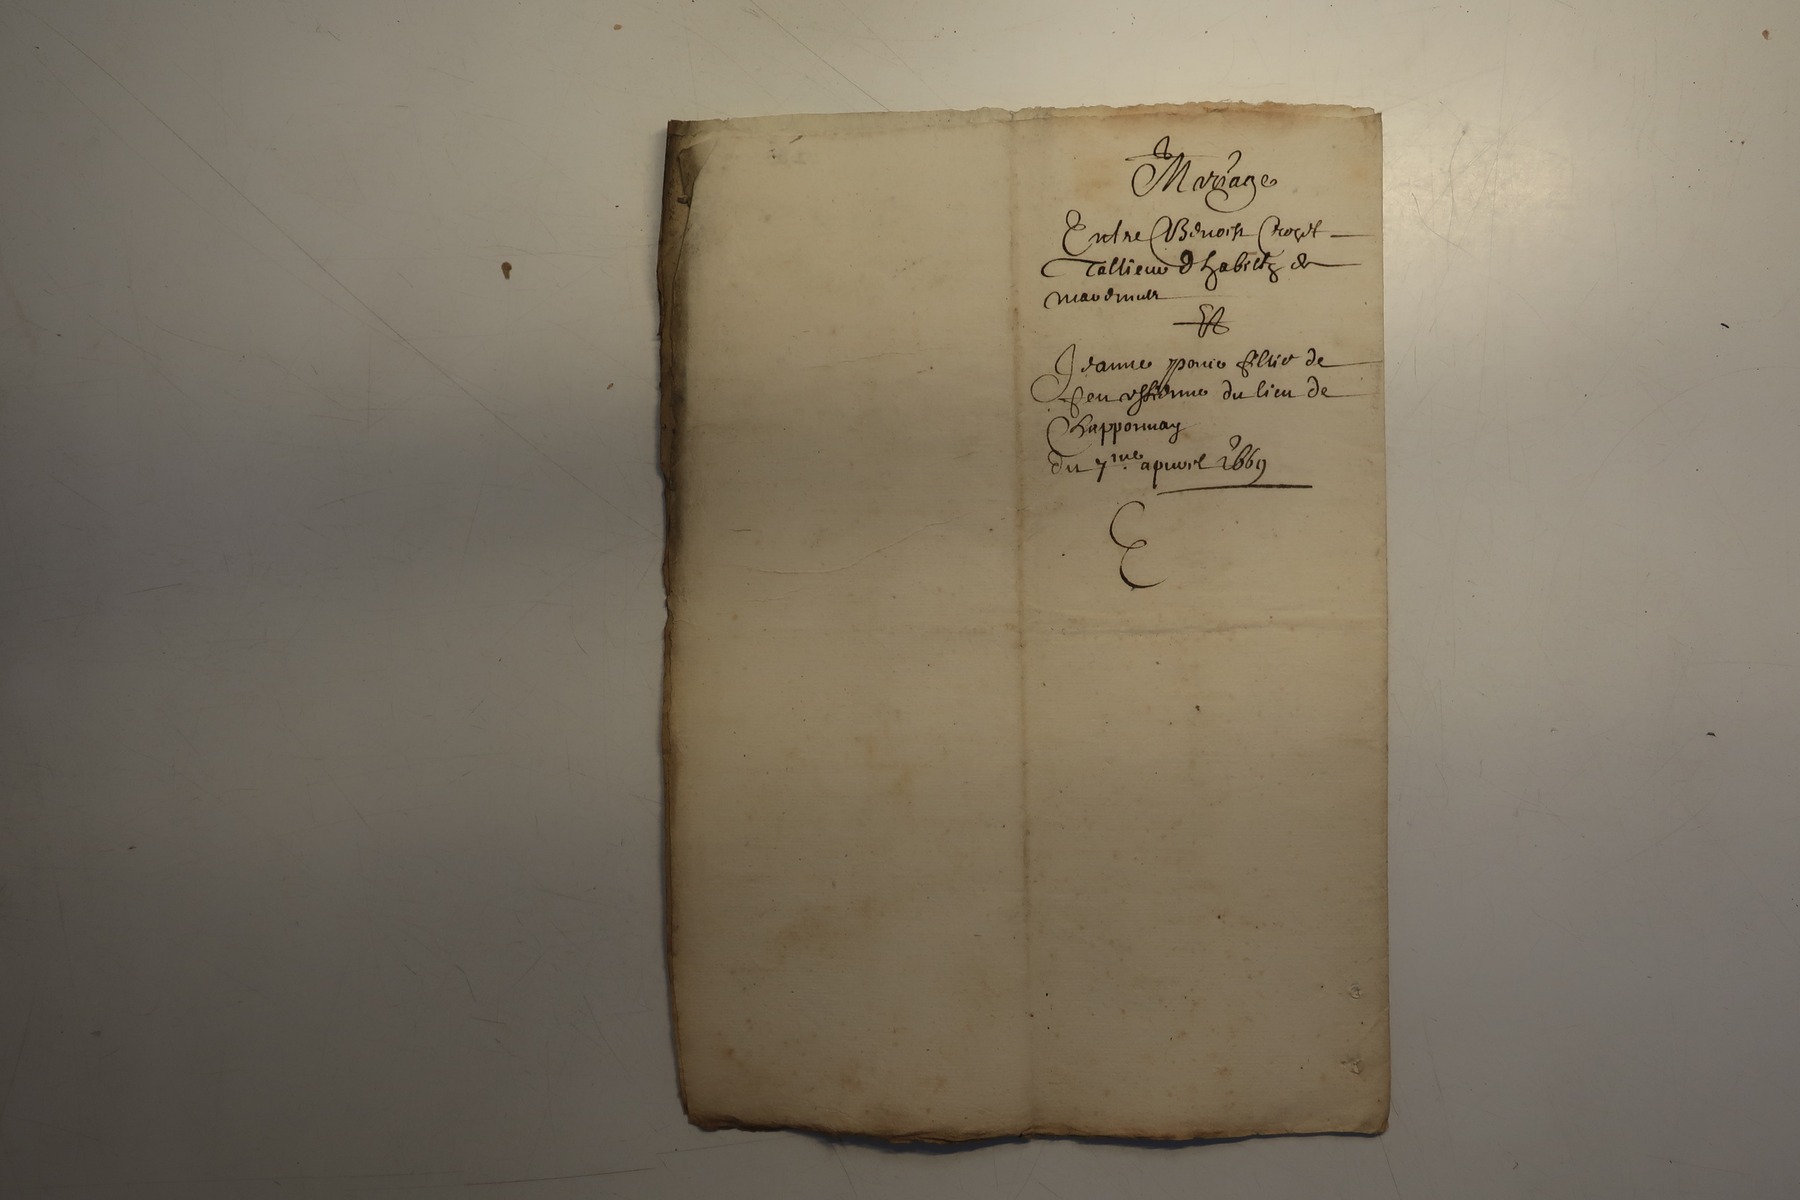 Mariage
Entre Benoist
Tallieur d habitz de
Et
Jeanne ponce fillie de
feu estienne du lieu de
Chapponnay
du 7me apvril 1669
E